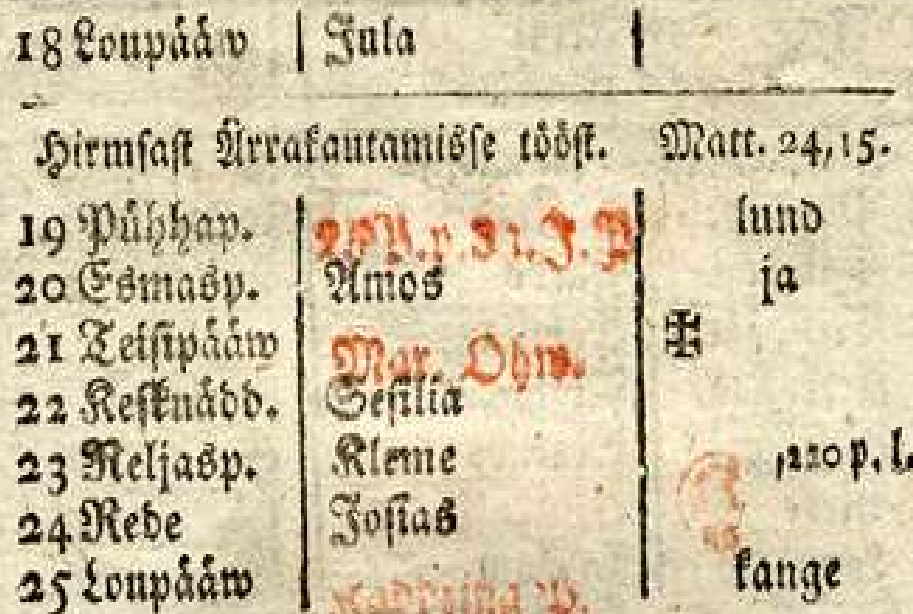 18 Loupääw | Jula
Hirmsast Ärrakautamisse tööst. Matt. 24,15.
19 Pühhap. lund
20 Esmasp. Amos ja
21 Teisipääw Mar. Ohw.
22 Kesknädd. Sesilia
23 Neljasp. Kleme ,220 p. l.
24 Rede Josias
25 Loupääw kange